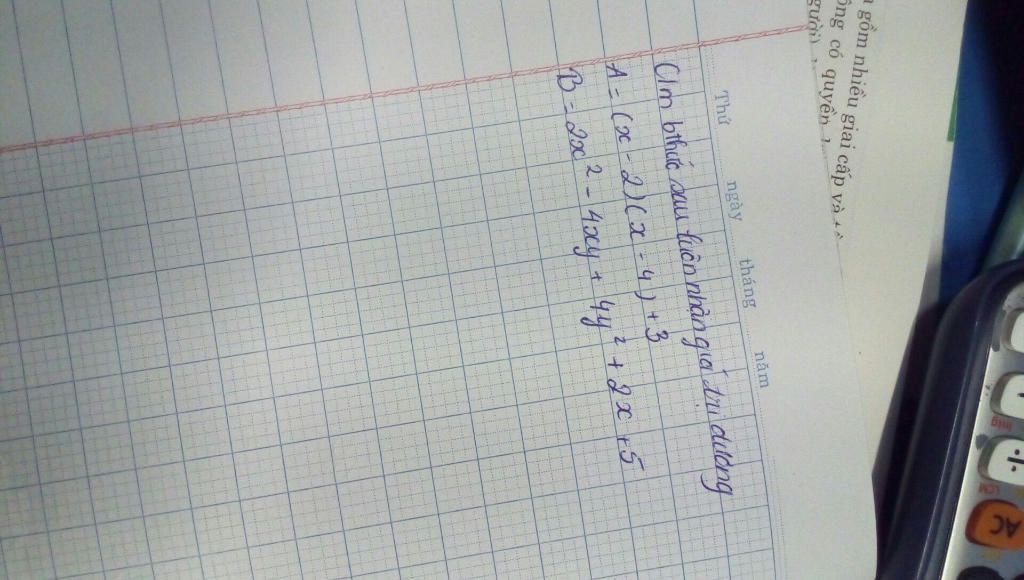 n gồm nhiều giai cấp và
ông có quyền
gười)
Thứ ngày tháng năm
Cm bthức sau luôn nhận giá trị dương
A = (x - 2)(x - 4) + 3
B = 2x² - 4xy + 4y² + 2x + 5
÷
AC
LCM